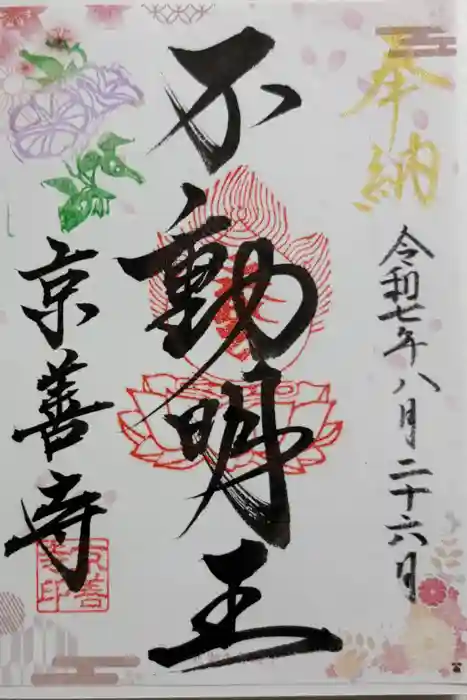 奉納
令和七年八月二十六日
不動明王
京善寺
京善
寺印